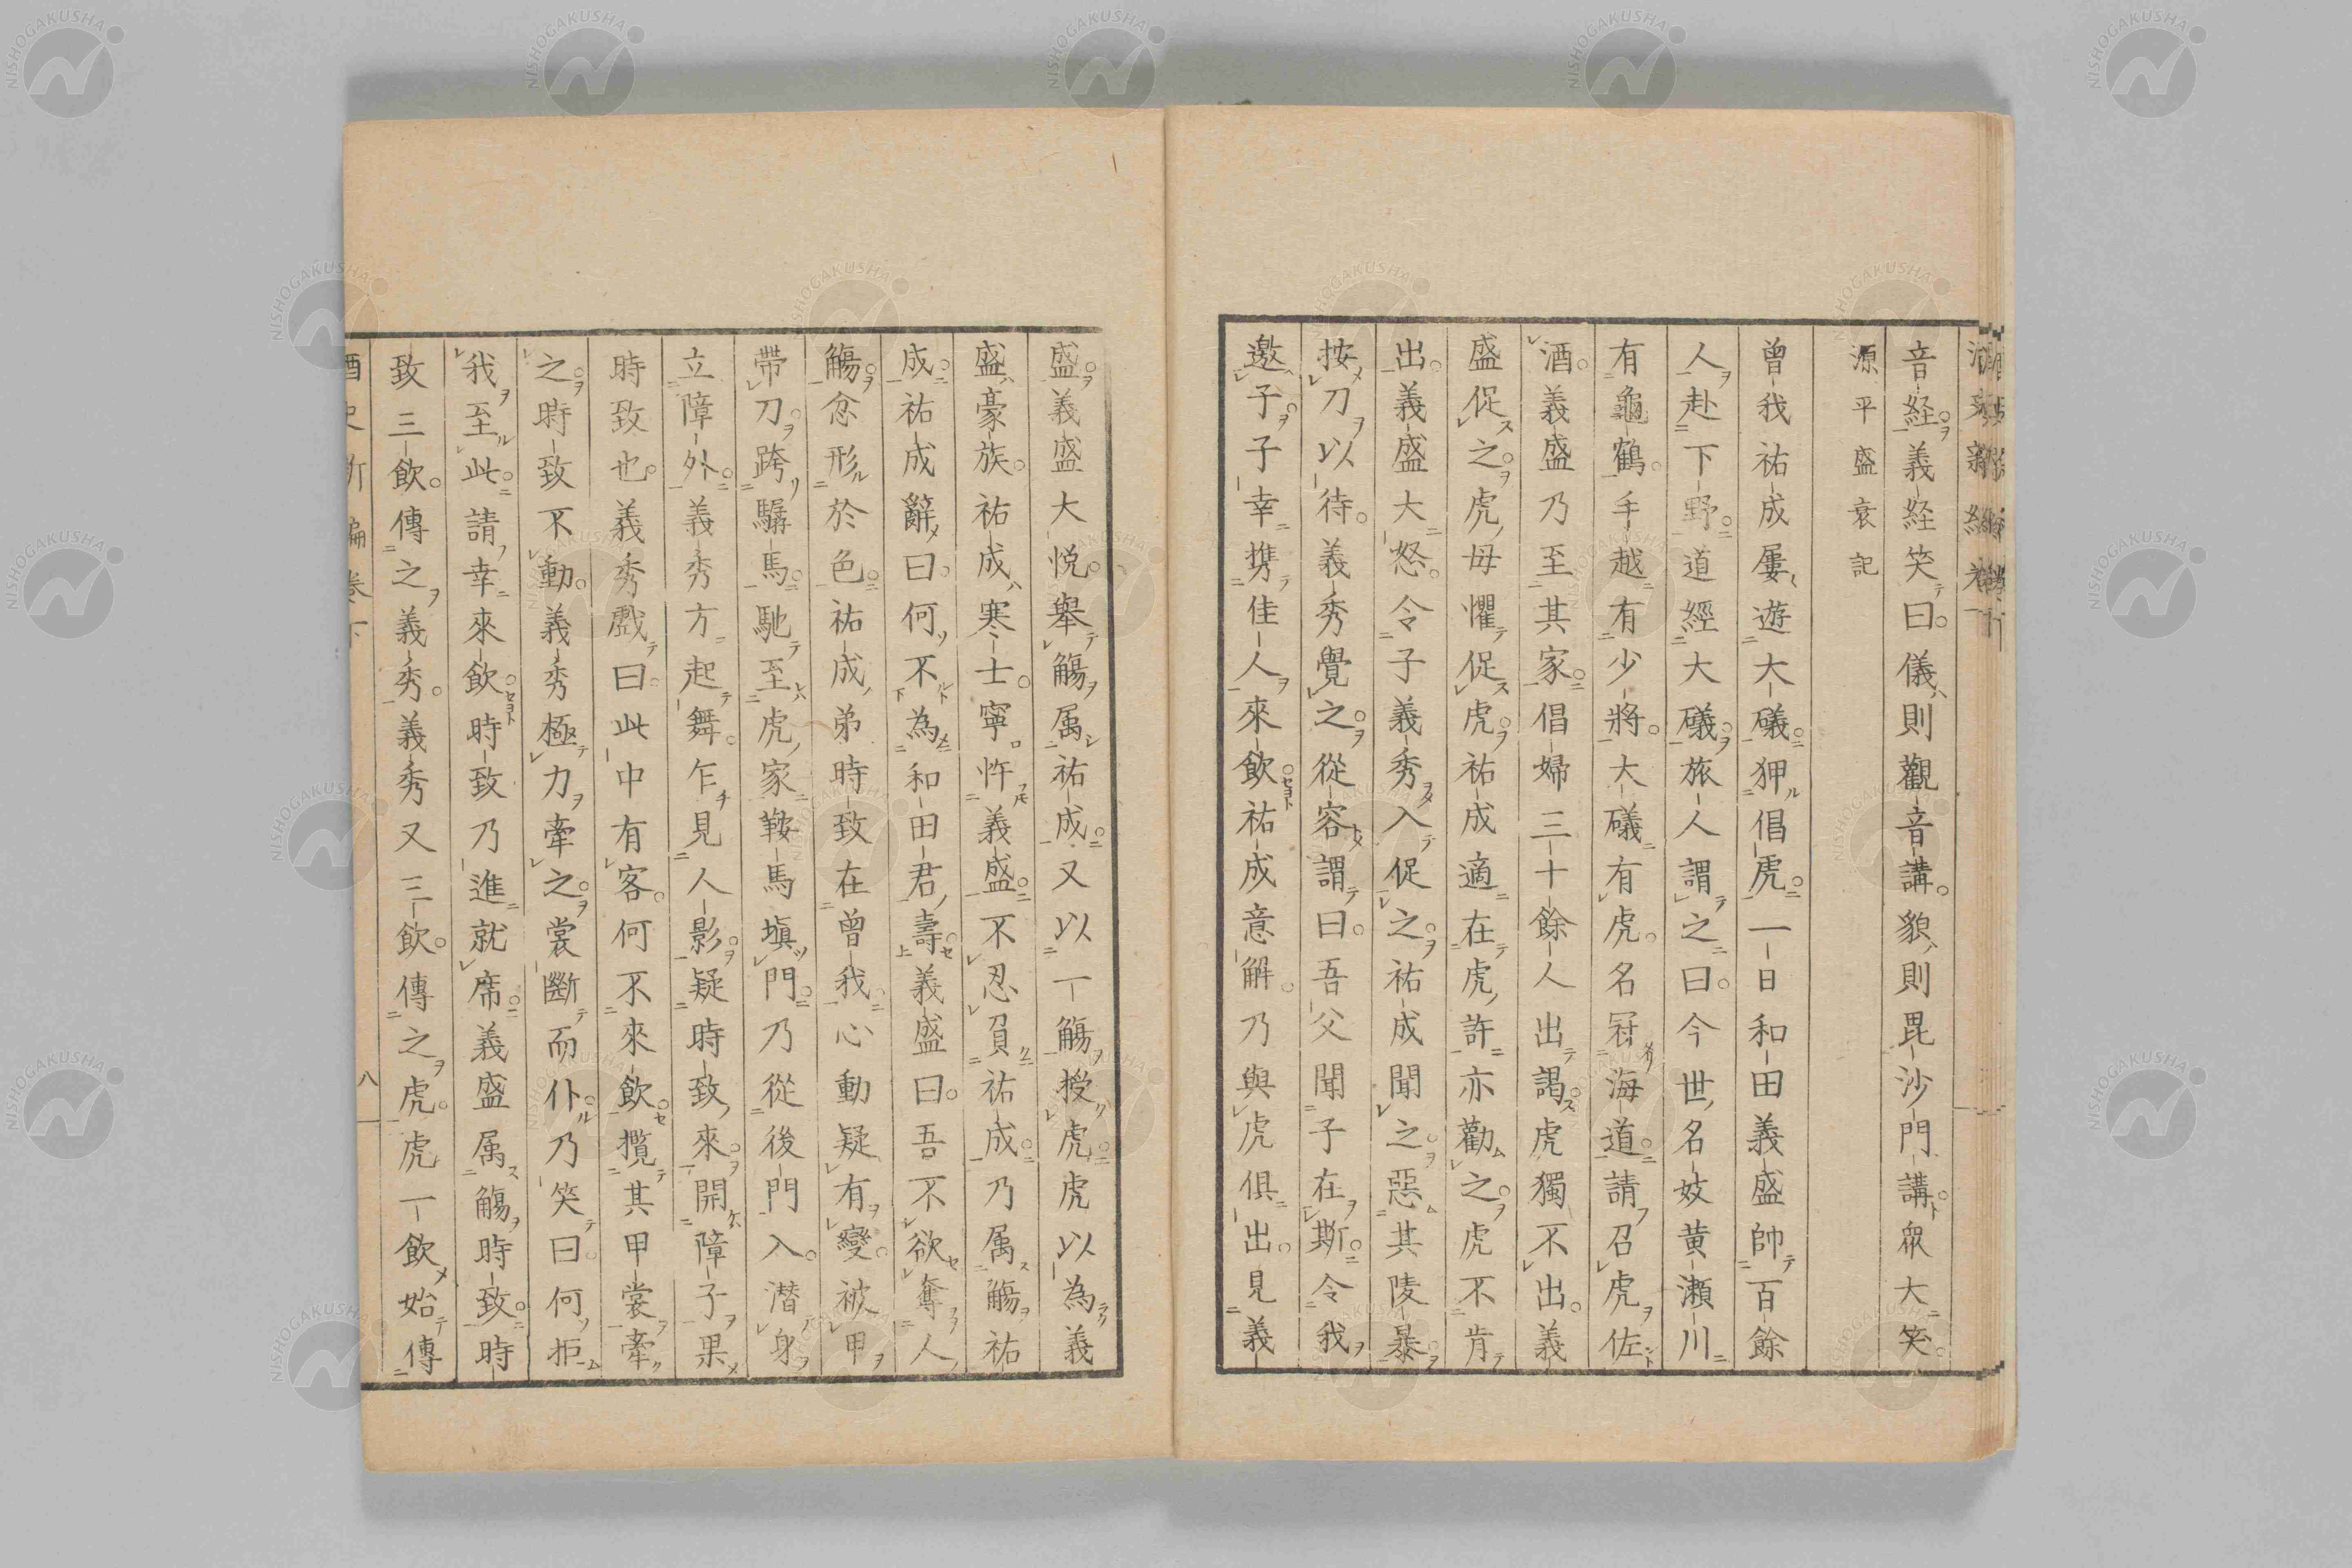 音経義経笑曰儀則觀音講貌則毘沙門講衆大笑
源平盛衰記
曾我祐成屢遊大礒狎倡虎一日和田義盛帥百餘
人赴下野道經大礒旅人謂之曰今世名妓黄瀬川
有龜鶴手越有少將大礒有虎名冠海道請召虎佐
酒義盛乃至其家倡婦三十餘人出謁虎獨不出義
盛促之虎毋懼促虎祐成適在虎許亦勸之虎不肯
出義盛大怒令子義秀入促之祐成聞之惡其陵暴
按刀以待義秀覺之從容謂曰吾父聞子在斯令我
邀子子幸携佳人來飲祐成意解乃與虎俱出見義
盛義盛大悦舉觴属祐成又以一觴授虎虎以為義
盛豪族祐成寒士寧忤義盛不忍負祐成乃属觴祐
成祐成辭曰何不為和田君壽義盛曰吾不欲奪人
觴忿形於色祐成弟時致在曾我心動疑有變被甲
帶刀跨驏馬馳至虎家鞍馬塡門乃從後門入潜身
立障外義秀方起舞乍見人影疑時致來開障子果
時致也義秀戲曰此中有客何不來飲攬其甲裳牽
之時致不動義秀極力牽之裳斷而仆乃笑曰何拒
我至此請幸來飲時致乃進就席義盛属觴時致時
致三飲傳之義秀義秀又三飲傳之虎虎一飲始傳
酒史新編卷下
八